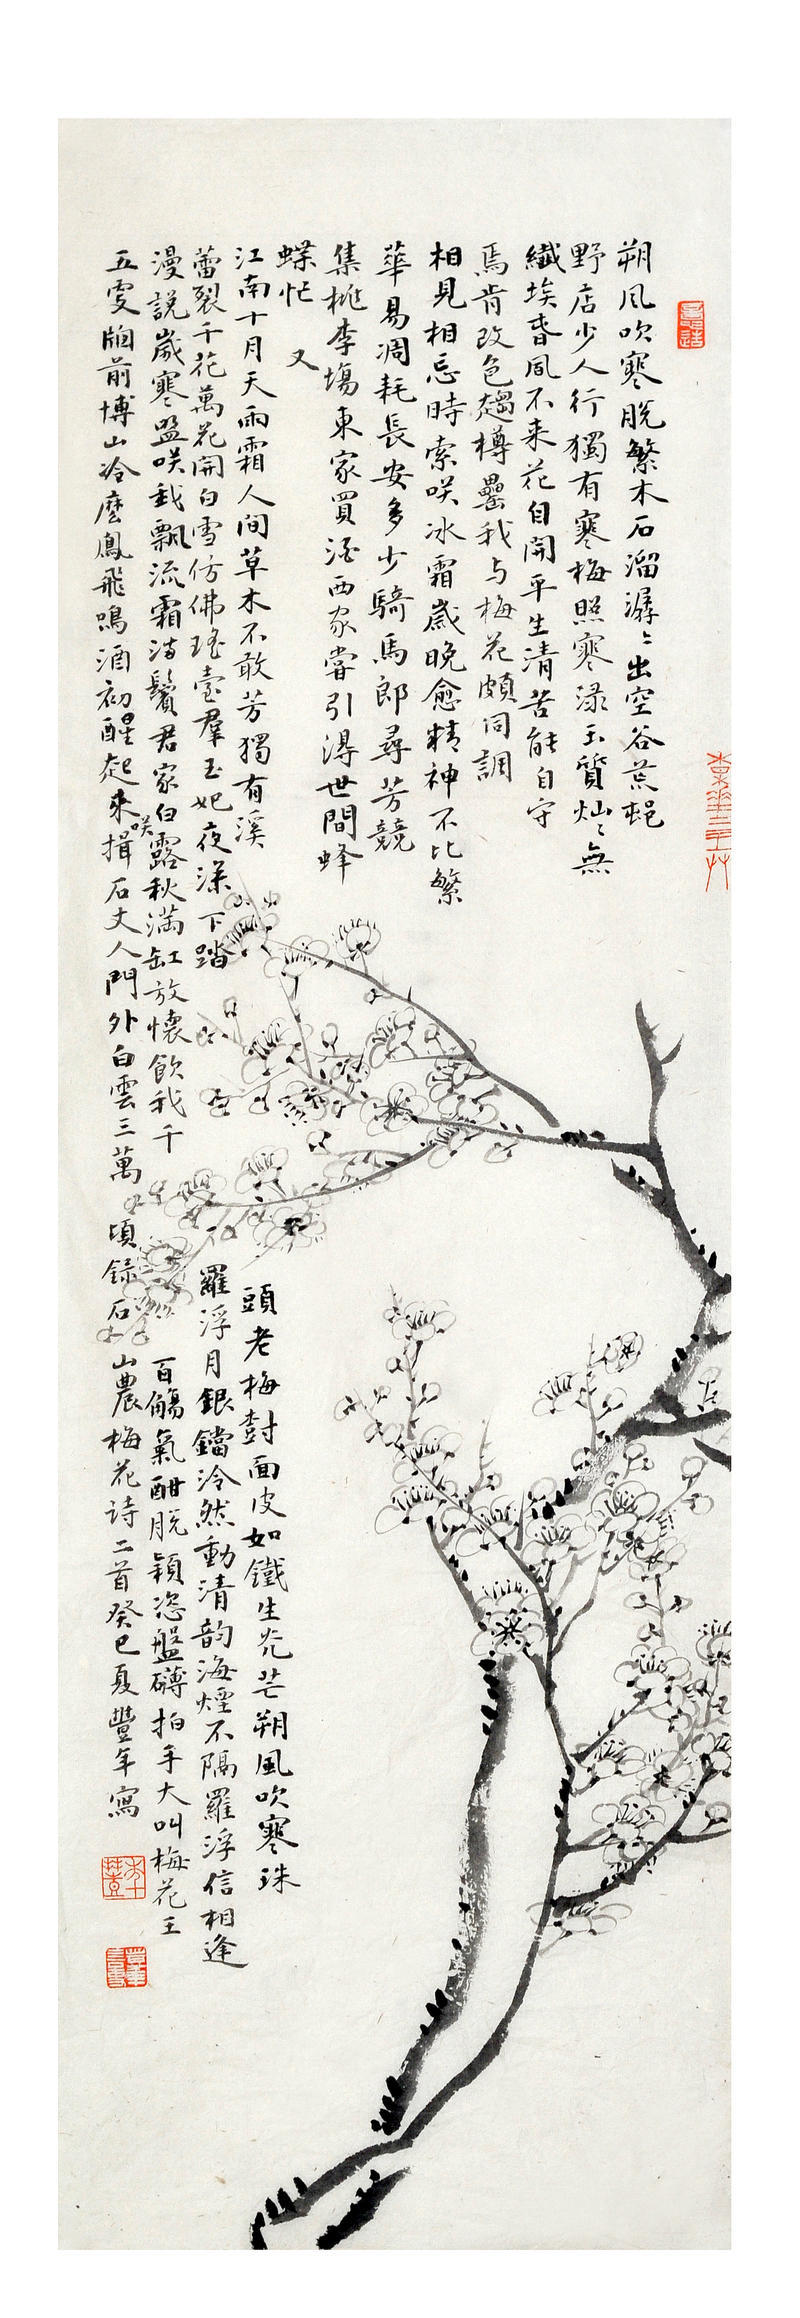 朔風吹寒脱繁木石溜潺〻出空谷荒邨
野店少人行獨有寒梅照寒渌玉質燦〻無
纖埃春風不来花自開平生清苦能自守
焉肯改色趨樽罍我与梅花頗同調
相見相忘時索咲冰霜歲晚愈精神不比繁
華易凋耗長安多少騎馬郎尋芳競
集桃李塲東家買酒西家嘗引得世間蜂
蝶忙 又
江南十月天雨霜人間草木不敢芳獨有溪頭老梅樹面皮如鐵生光芒朔風吹寒珠
蕾裂千花萬花開白雪仿佛瑤臺羣玉妃夜深下踏羅浮月銀鐺泠然動清韵海煙不隔羅浮信相逢
漫説歲寒盟咲我飄流霜滿鬢君家白露秋滿缸放懷飲我千百觴氣酣脱穎恣盤礴拍手大叫梅花王
五更牕前博山冷麽鳳飛鳴酒初醒起来咲揖石丈人門外白雲三萬頃録石山農梅花诗二首癸巳夏豐年寫